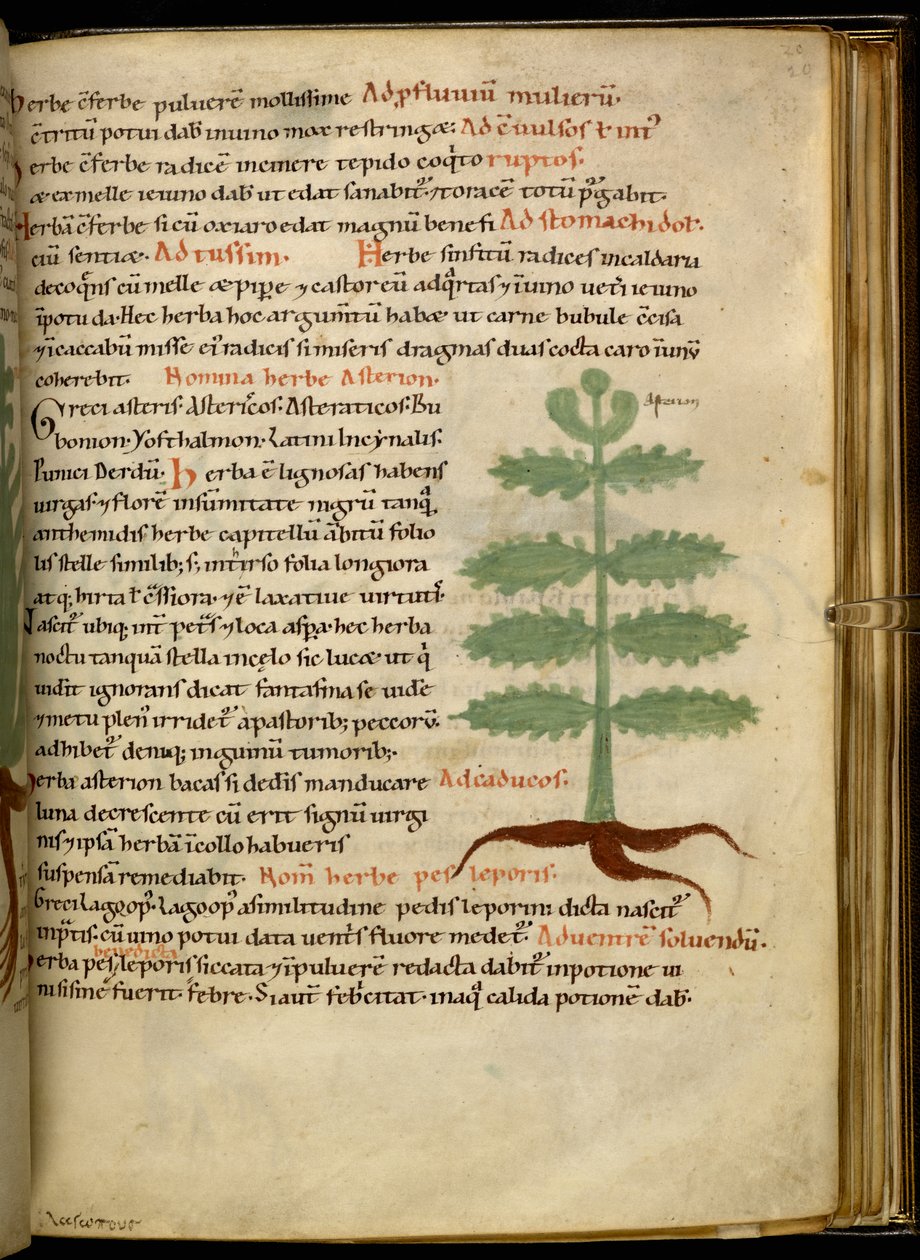 herbe c̄ferbe pulverē mollissime Ad ꝓfluviū mulierū.
c̄tritū potui dab̄ in vino mox restringæ: Ad c̄vulsos ł int᷒
herbe c̄ferbe radicē incinere tepido coq̄to ruptos.
æ ex melle ieiuno dab̄ ut edat sanabit᷒. ⁊toracē totū p᷒gabit.
Herbā c̄ferbe si cū oxiaro edat magnū benefi Ad stomachi dol᷒.
ciū sentiæ. Ad tussim. Herbe sinfitū radices in caldaria
decoq̄ns cū melle æ pip̄e ⁊ castoreū adq̄rtas ⁊ ī vino vet̄i ieiuno
ī potu da. Hec herba hoc argum̄tū habæ ut carne bubule c̄cisa
⁊ ī caccabū misse ei᷒ radicis si miseris dragmas duas cocta caro ī unū
coherebit. Nomina herbe Asterion.
Greci asteris. Astericos. Asteraticos. Bu
bonion. Yofthalmon. Latini Incynalis.
Punici Derdū. herba ē lignosas habens
virgas. ⁊ florē in sūmitate nigrū tanq̄
anthemidis herbe capitellū ābitū folio
lis stelle similib; s; in thirso folia longiora
atq; hirta ł c̄ssiora. ⁊ ē laxative virtuti᷒.
Nascit᷒ ubiq; int̄ pet̄s ⁊ loca asp̄a. hec herba
noctu tanquā stella in cęlo sic lucæ ut q̄
vidit ignorans dicat fantasma se vide
⁊ metu plen᷒ irridet᷒ a pastorib; peccorū.
adhibet᷒ deniq; inguinū tumorib;.
herba asterion bacas si dederis manducare Ad caducos.
luna decrescente cū erit signū virgi
nis ⁊ ipsā herbā ī collo habueris
suspensā remediabit. Nom̄ herbe pes leporis.
Greci lagoop᷒. Lagoop᷒ a similitudine pedis leporini dicta nascit᷒
in p̄tis. cū vino potui data vent̄s fluore medet᷒. Ad ventrē solvendū.
benedicta
herba pes leporis siccata ⁊ ī pulverē redacta dabit᷒ in potione vi
ni si sine fuerit febre. Si aut̄ feb̄citat. in aq̄ calida potionē dab̄.
Asterion
20
20